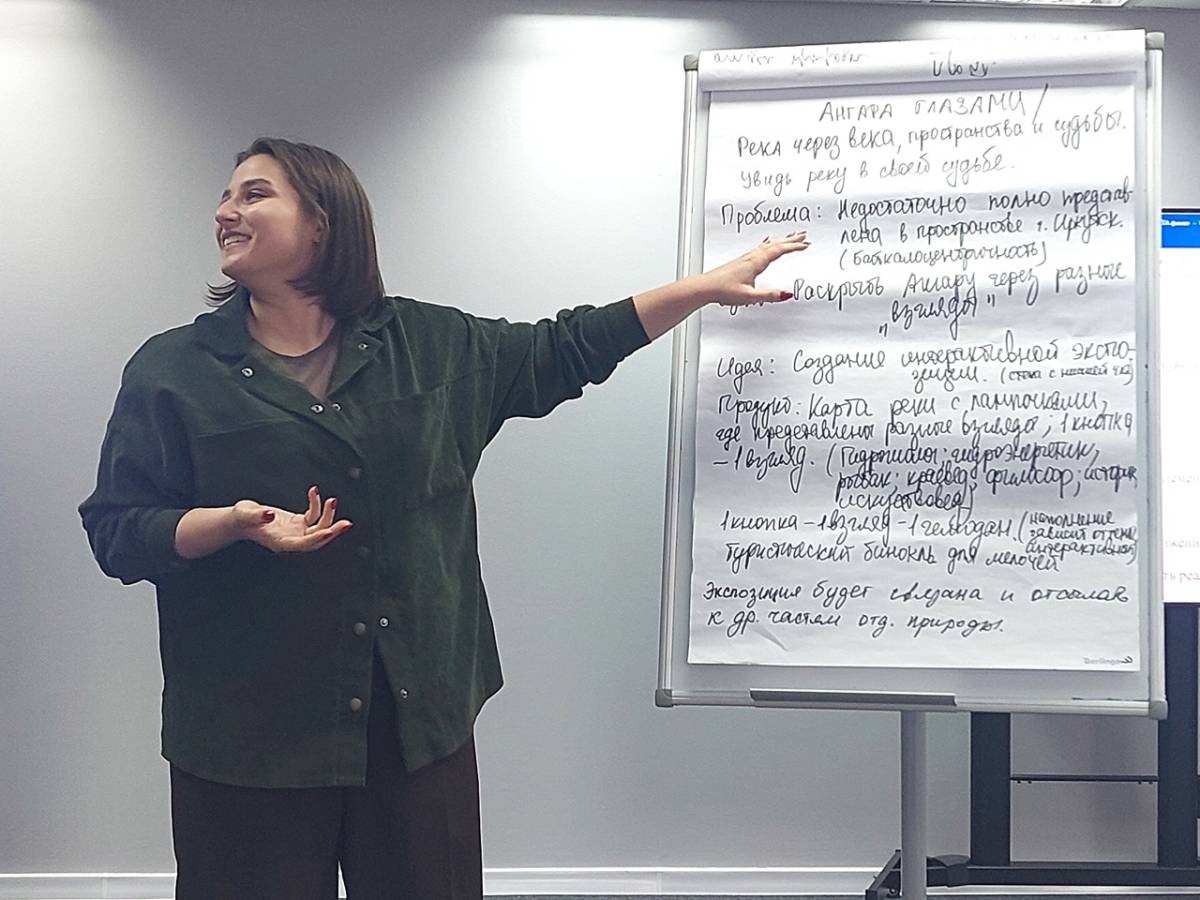 АНГАРА ГЛАЗАМИ /
Река через века, пространства и судьбы.
Увидь реку в своей судьбе.
Проблема: Недостаточно полно представ-
лена в пространстве г. Иркутск.
(байкалоцентричность)
Раскрыть Ангару через разные
"взгляды"
Идея: Создание интерактивной экспо-
зиции. (стена с нишей
Продукт: Карта реки с лампочками,
где представлены разные взгляды; 1 кнопка
– 1 взгляд. (Гидролог; гидроэнергетик,
рыбак; краевед; философ; историк,
искусствовед)
1 кнопка – 1 взгляд – 1 чемодан. (наполнение
зависит от темы,
интерактивное)
Туристический бинокль для мелочей
Экспозиция будет связана и отсылать
к др. частям отд. природы.
Berlingo